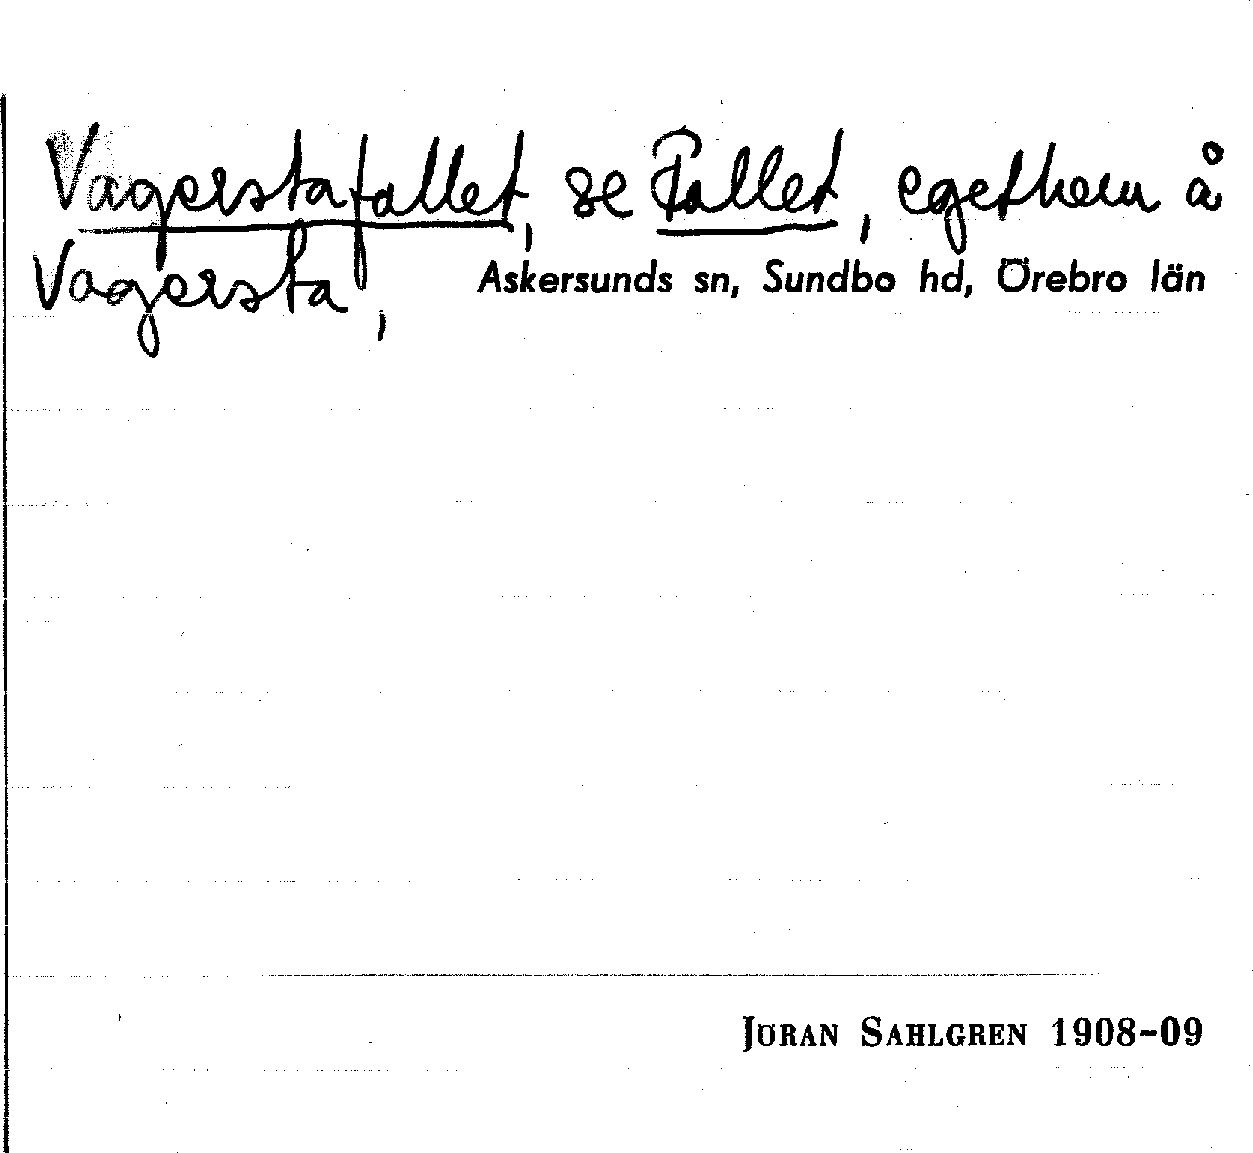 Vagerstafallet, se Fallet, egethem å
Vagersta, Askersunds sn, Sundbo hd, Örebro län
JÖRAN SAHLGREN 1908-09